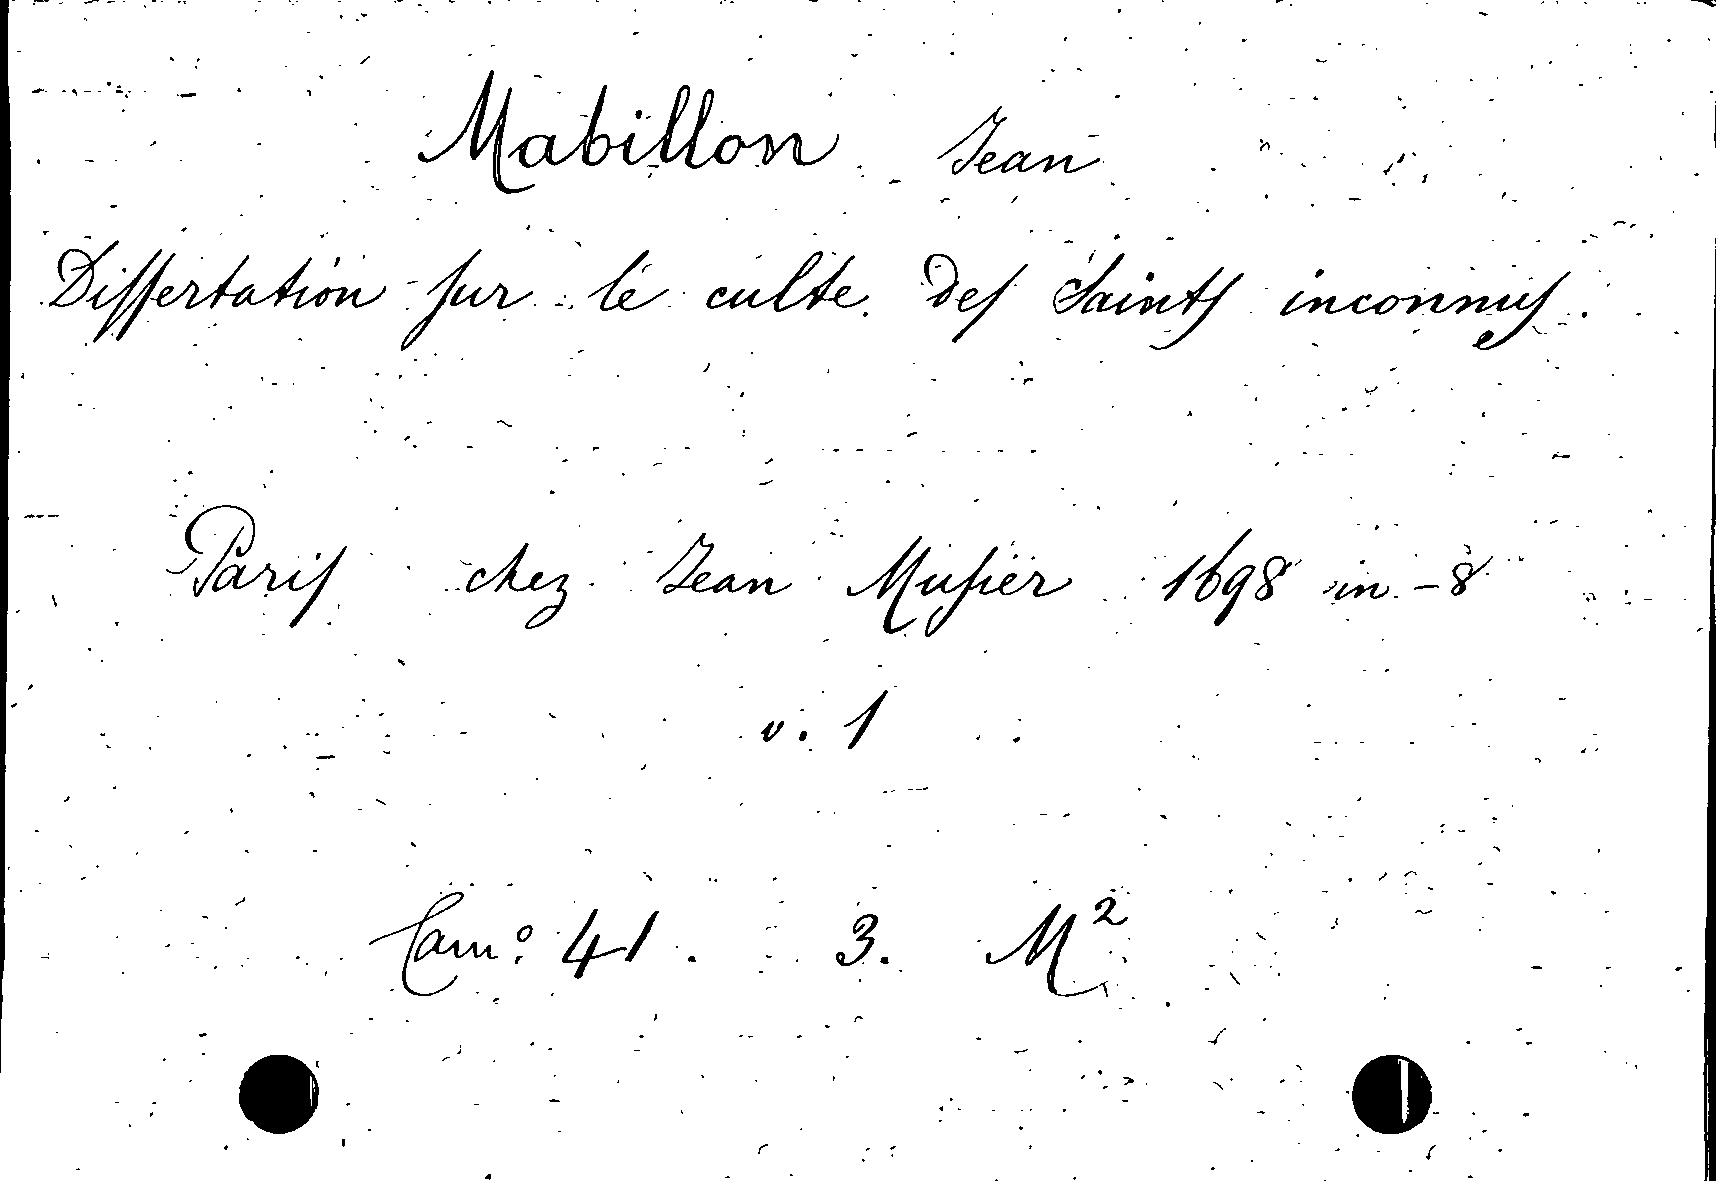 Mabillon Jean
Dissertation sur le culte des Saints inconnus.
Paris chez Jean Musier 1698 in-8
v. 1
Cam: 41. 3. M²